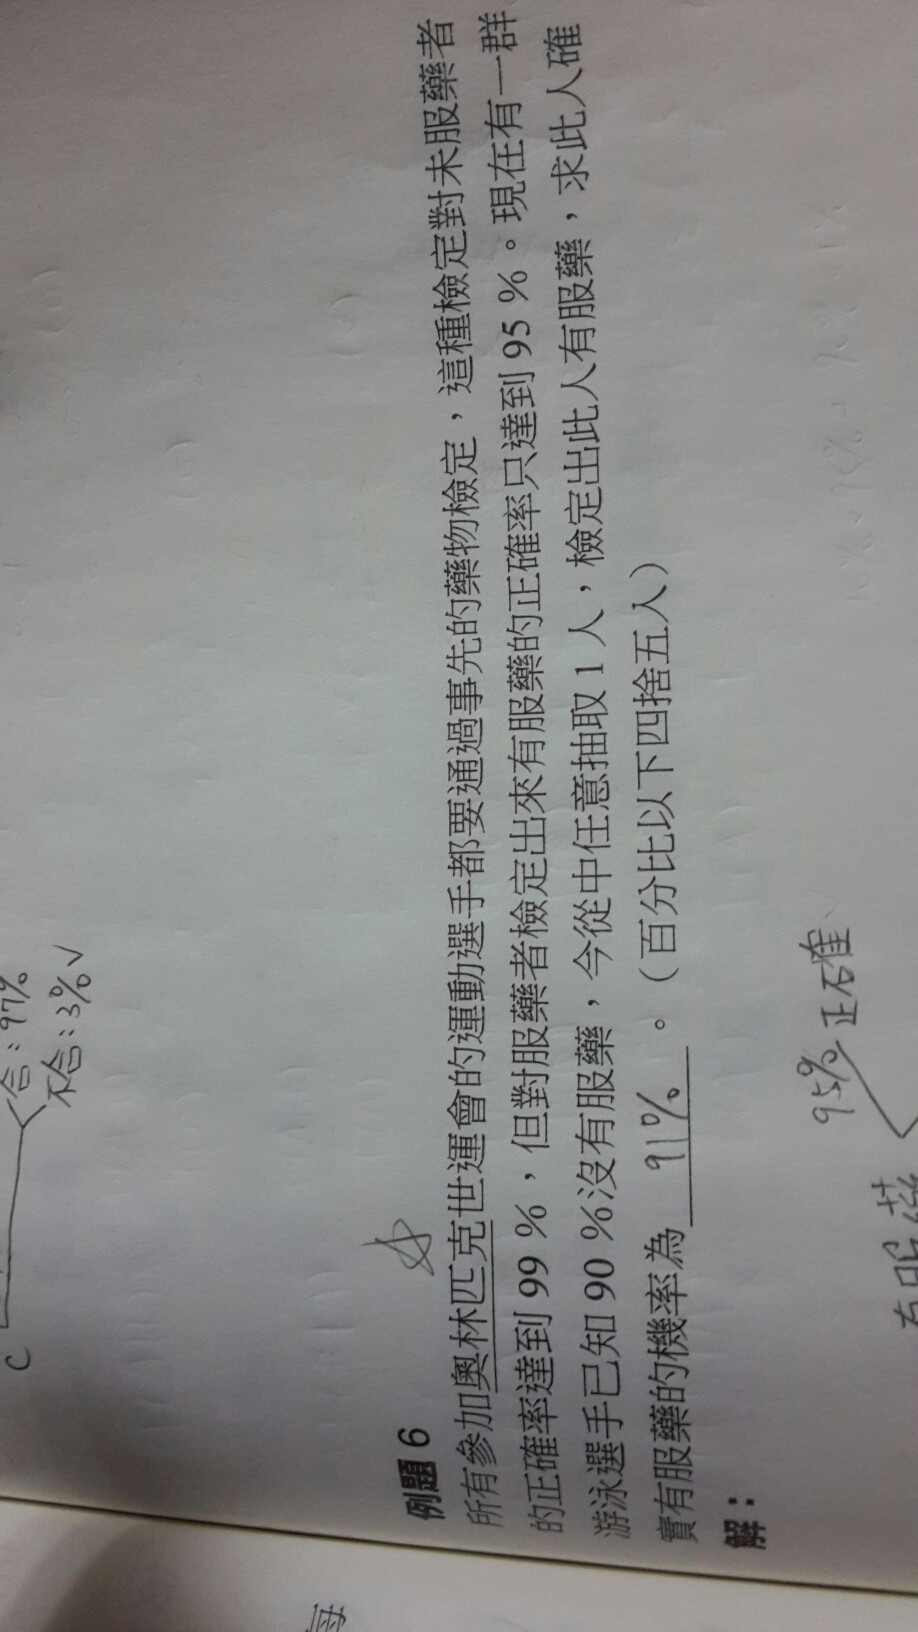 C
合：97%
不合：3%✓
例題 6
所有參加奧林匹克世運會的運動選手都要通過事先的藥物檢定，這種檢定對未服藥者
的正確率達到 99 %，但對服藥者檢定出來有服藥的正確率只達到 95 %。現在有一群
游泳選手已知 90 %沒有服藥，今從中任意抽取 1 人，檢定出此人有服藥，求此人確
實有服藥的機率為 91% 。（百分比以下四捨五入）
解：
95% 正確
有服藥
每